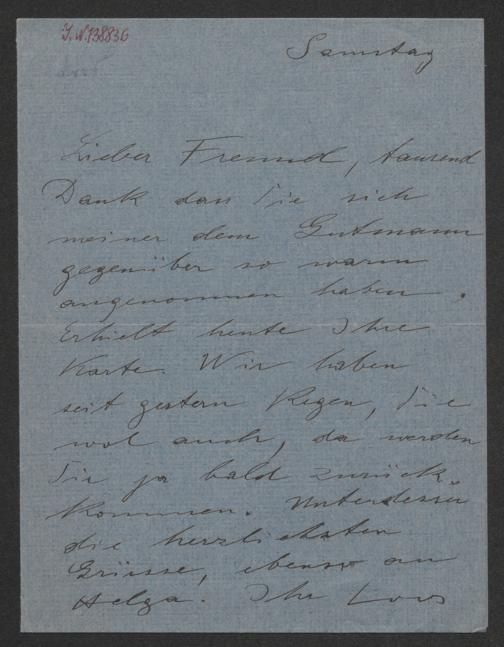 I.N.138836
Samstag
Lieber Freund, tausend
Dank dass Sie sich
meiner dem Gutmann
gegenüber so warm
angenommen haben.
Erhielt heute Ihre
Karte. Wir haben
seit gestern Regen, Sie
wol auch, da werden
Sie ja bald zurück
kommen. Unterdessen
die herzlichsten
Grüsse, ebenso an
Helga. Ihr Loos